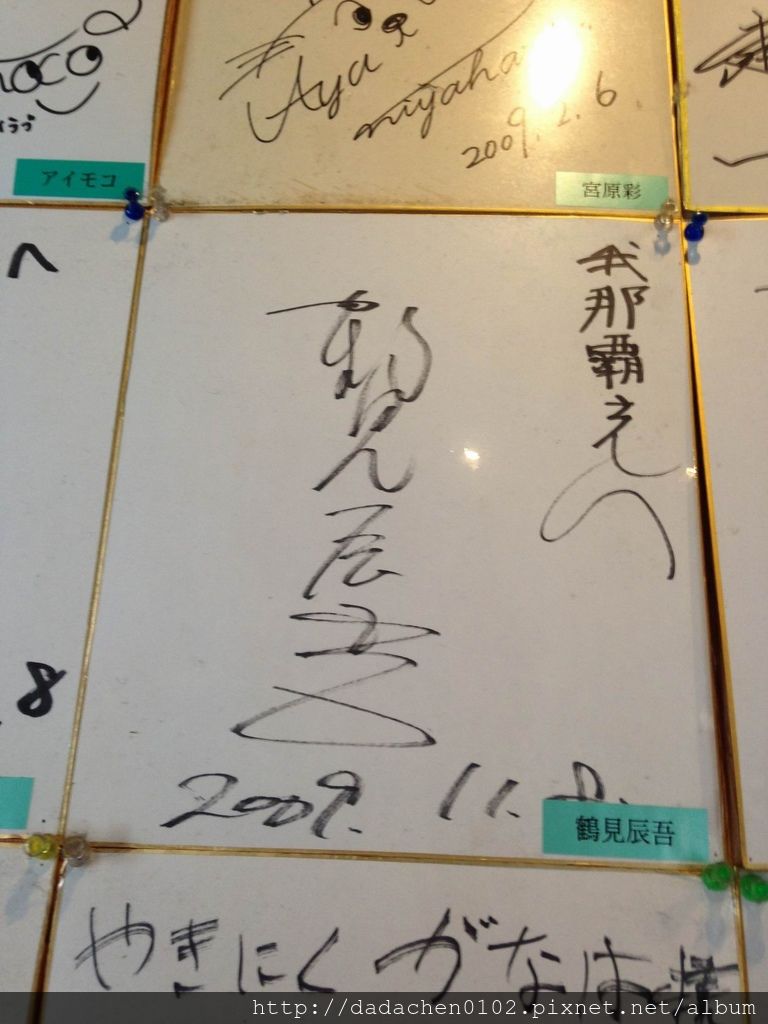 oco
アイモコ
Aya
miyaha
2009.2.6.
宮原彩
へ
我那覇さんへ
鶴見辰吾
8
2009. 11. 8.
鶴見辰吾
やきにく がなは様
http://dadachen0102.pixnet.net/album